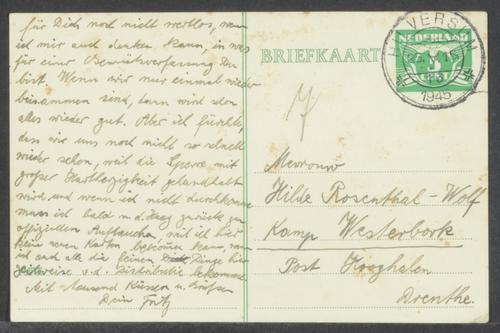 für Dich noch nicht wertlos, wenn
ich mir auch denken kann, in was
für einer Gemütsverfassung Du
bist. Wenn wir nur einmal wieder
beisammen sind, dann wird schon
alles wieder gut. Aber ich fürchte,
dass wir uns noch nicht so schnell
wieder sehen, weil die Sperre mit
großer Hartherzigkeit gehandhabt
wird, und wenn ich nicht durchkomme
muss ich bald n. d. Haag zurück zum
offiziellen Auftauchen, weil ich hier
keine neuen Karten bekommen kann, wenn
ich auch alle die feinen Dinge hier
zeitweise v. d. Distributie bekomme
Mit tausend Küssen u. Grüßen
Dein Fritz
BRIEFKAART
NEDERLAND
5
CENT
HILVERSUM
1945
Mevrouw
Hilde Rosenthal-Wolf
Kamp Westerbork
Post Hooghalen
Drenthe.